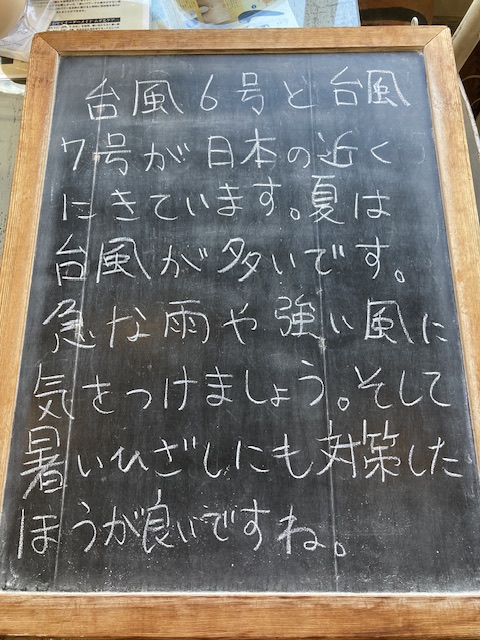 台風6号と台風
7号が日本の近く
にきています。夏は
台風が多いです。
急な雨や強い風に
気をつけましょう。そして
暑いひざしにも対策した
ほうが良いですね。